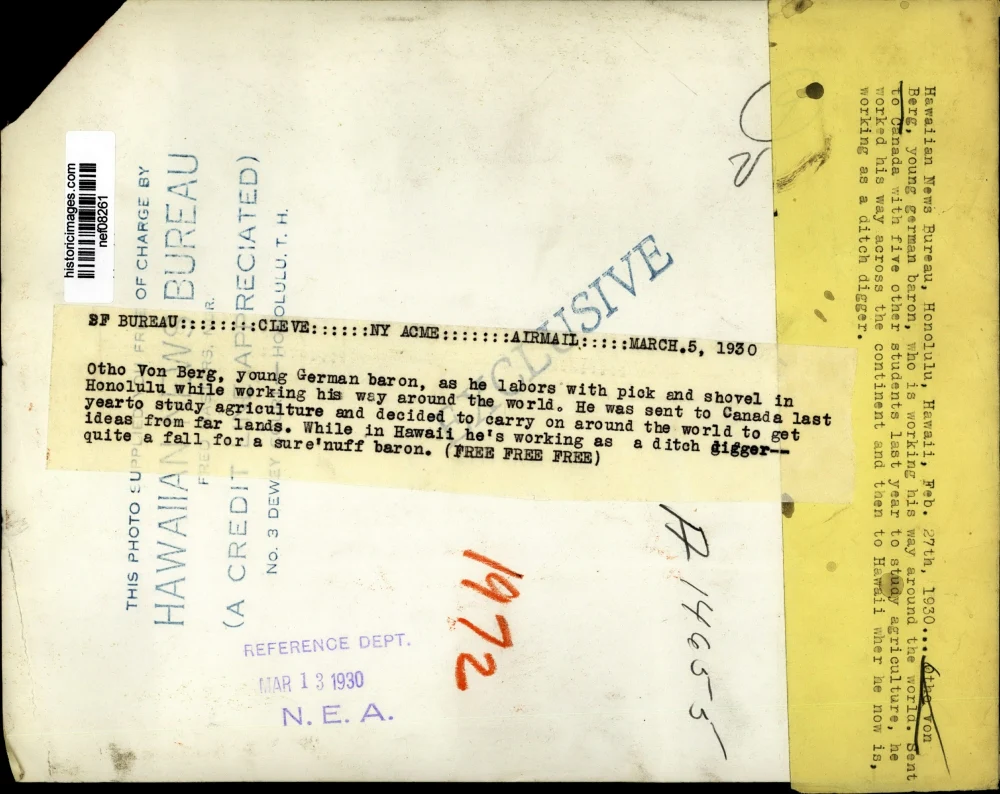 SF BUREAU::::::::CLEVE::::::NY ACME:::::::AIRMAIL:::::MARCH.5, 1930
Otho Von Berg, young German baron, as he labors with pick and shovel in
Honolulu while working his way around the world. He was sent to Canada last
yearto study agriculture and decided to carry on around the world to get
ideas from far lands. While in Hawaii he's working as a ditch digger--
quite a fall for a sure'nuff baron. (FREE FREE FREE)
Hawaiian News Bureau, Honolulu, Hawaii, Feb. 27th, 1930... Otho Von
Berg, young german baron, who is working his way around the world. Sent
to Canada with five other students last year to study agriculture, he
worked his way across the continent and then to Hawaii wher he now is,
working as a ditch digger.
historicimages.com
nef08261
THIS PHOTO SUPPLIED FREE OF CHARGE BY
HAWAIIAN NEWS BUREAU
(A CREDIT APPRECIATED)
No. 3 DEWEY HONOLULU. T. H.
EXCLUSIVE
REFERENCE DEPT.
MAR 13 1930
N. E. A.
1972
A 14655